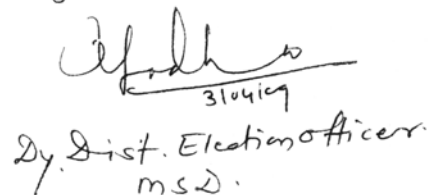 3/04/09
Dy. Dist. Election officer.
MSD.